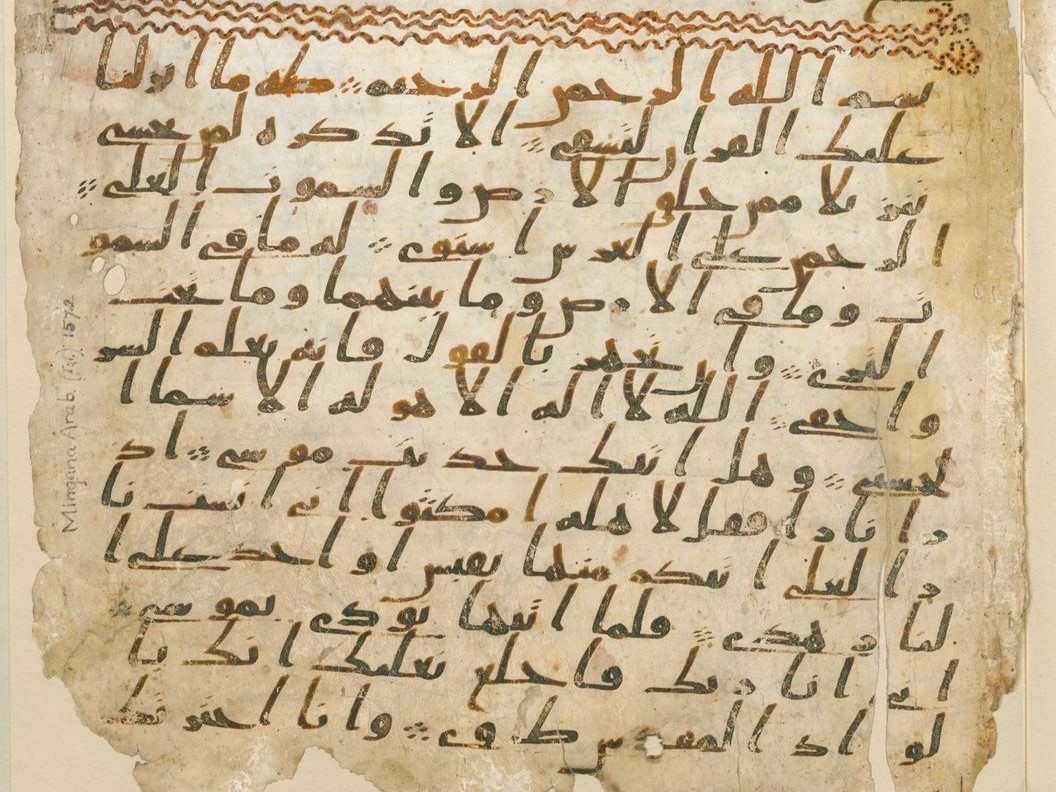 بسم الله الرحمن الرحيم طه ما انزلنا
عليك القران لتشقى الا تذكرة لمن يخشى
تنزيلا ممن خلق الارض والسموت العلى
الرحمن على العرش استوى له ما في السمو
ت وما في الارض وما بينهما وما تحت
الثرى وان تجهر بالقول فانه يعلم السر
واخفى الله لا اله الا هو له الاسما ا
لحسنى وهل اتيك حديث موسى اذ
را نارا فقل لاهله امكثوا اني انست نا
را لعلي اتيكم منها بقبس او اجد على ا
لنار هدى فلما اتيها نودي يموسى
اني انا ربك فاخلع نعليك انك با
لواد المقدس طوى وانا اخترتك
Mingana Arab. (Isl.) 1572